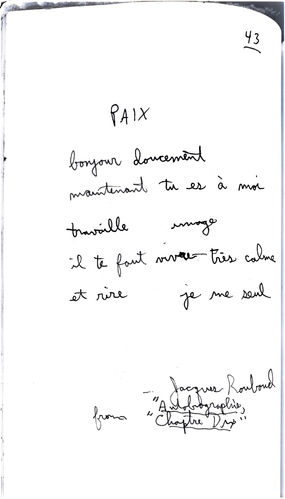 43
PAIX
bonjour doucement
maintenant tu es à moi
travaille image
il te faut vivre très calme
et rire je me seul
— Jacques Roubaud
from "Autobiographie,
Chapitre Dix"